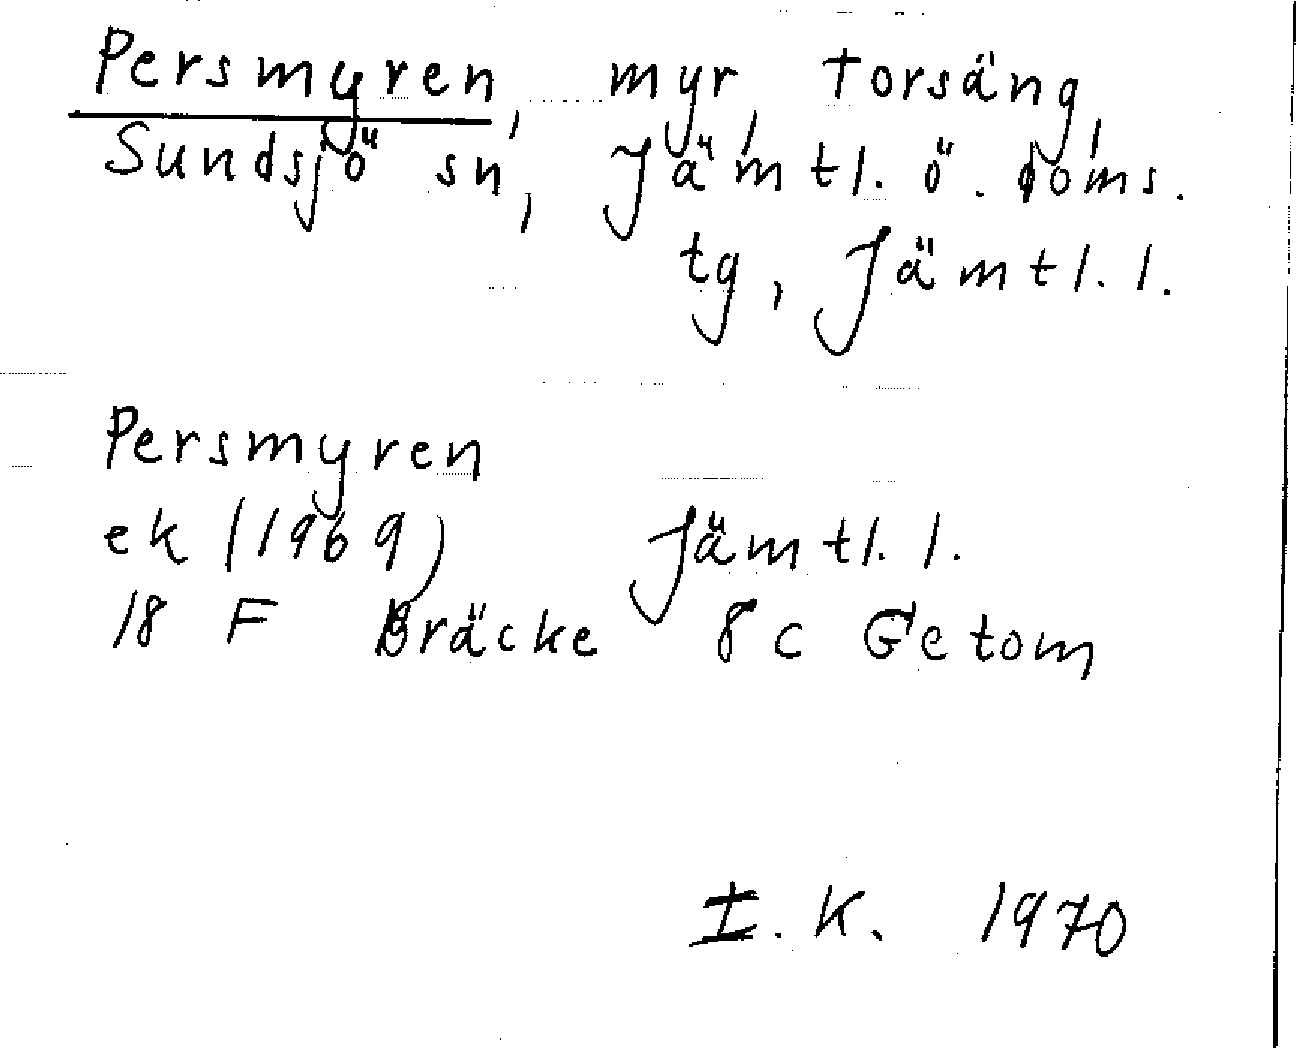 Persmyren, myr, Torsäng,
Sundsjö sn, Jämtl. ö. doms.
tg, Jämtl. l.
Persmyren
ek (1969) Jämtl. l.
18 F Bräcke 8c Getom
I. K. 1970